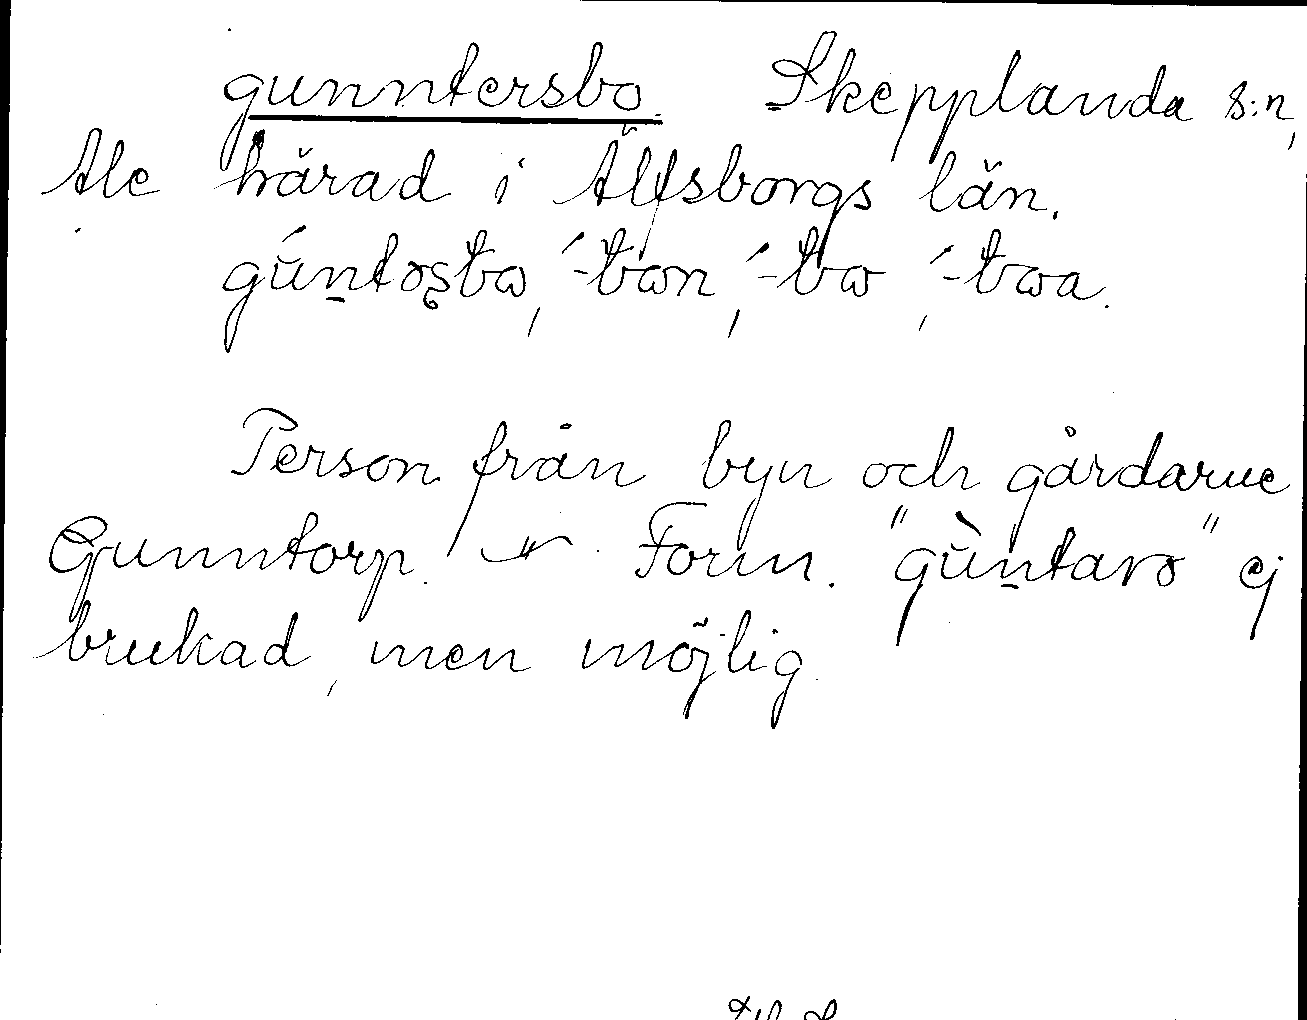 gunntersbo Skepplanda s:n,
Ale härad i Älfsborgs län.
gúntəʂbɷ, ´-bɷn, ´-bɷ, ´-bɷa.
Person från byn och gårdarne
Gunntorp. Form. "gùntarə" ej
brukad, men möjlig.